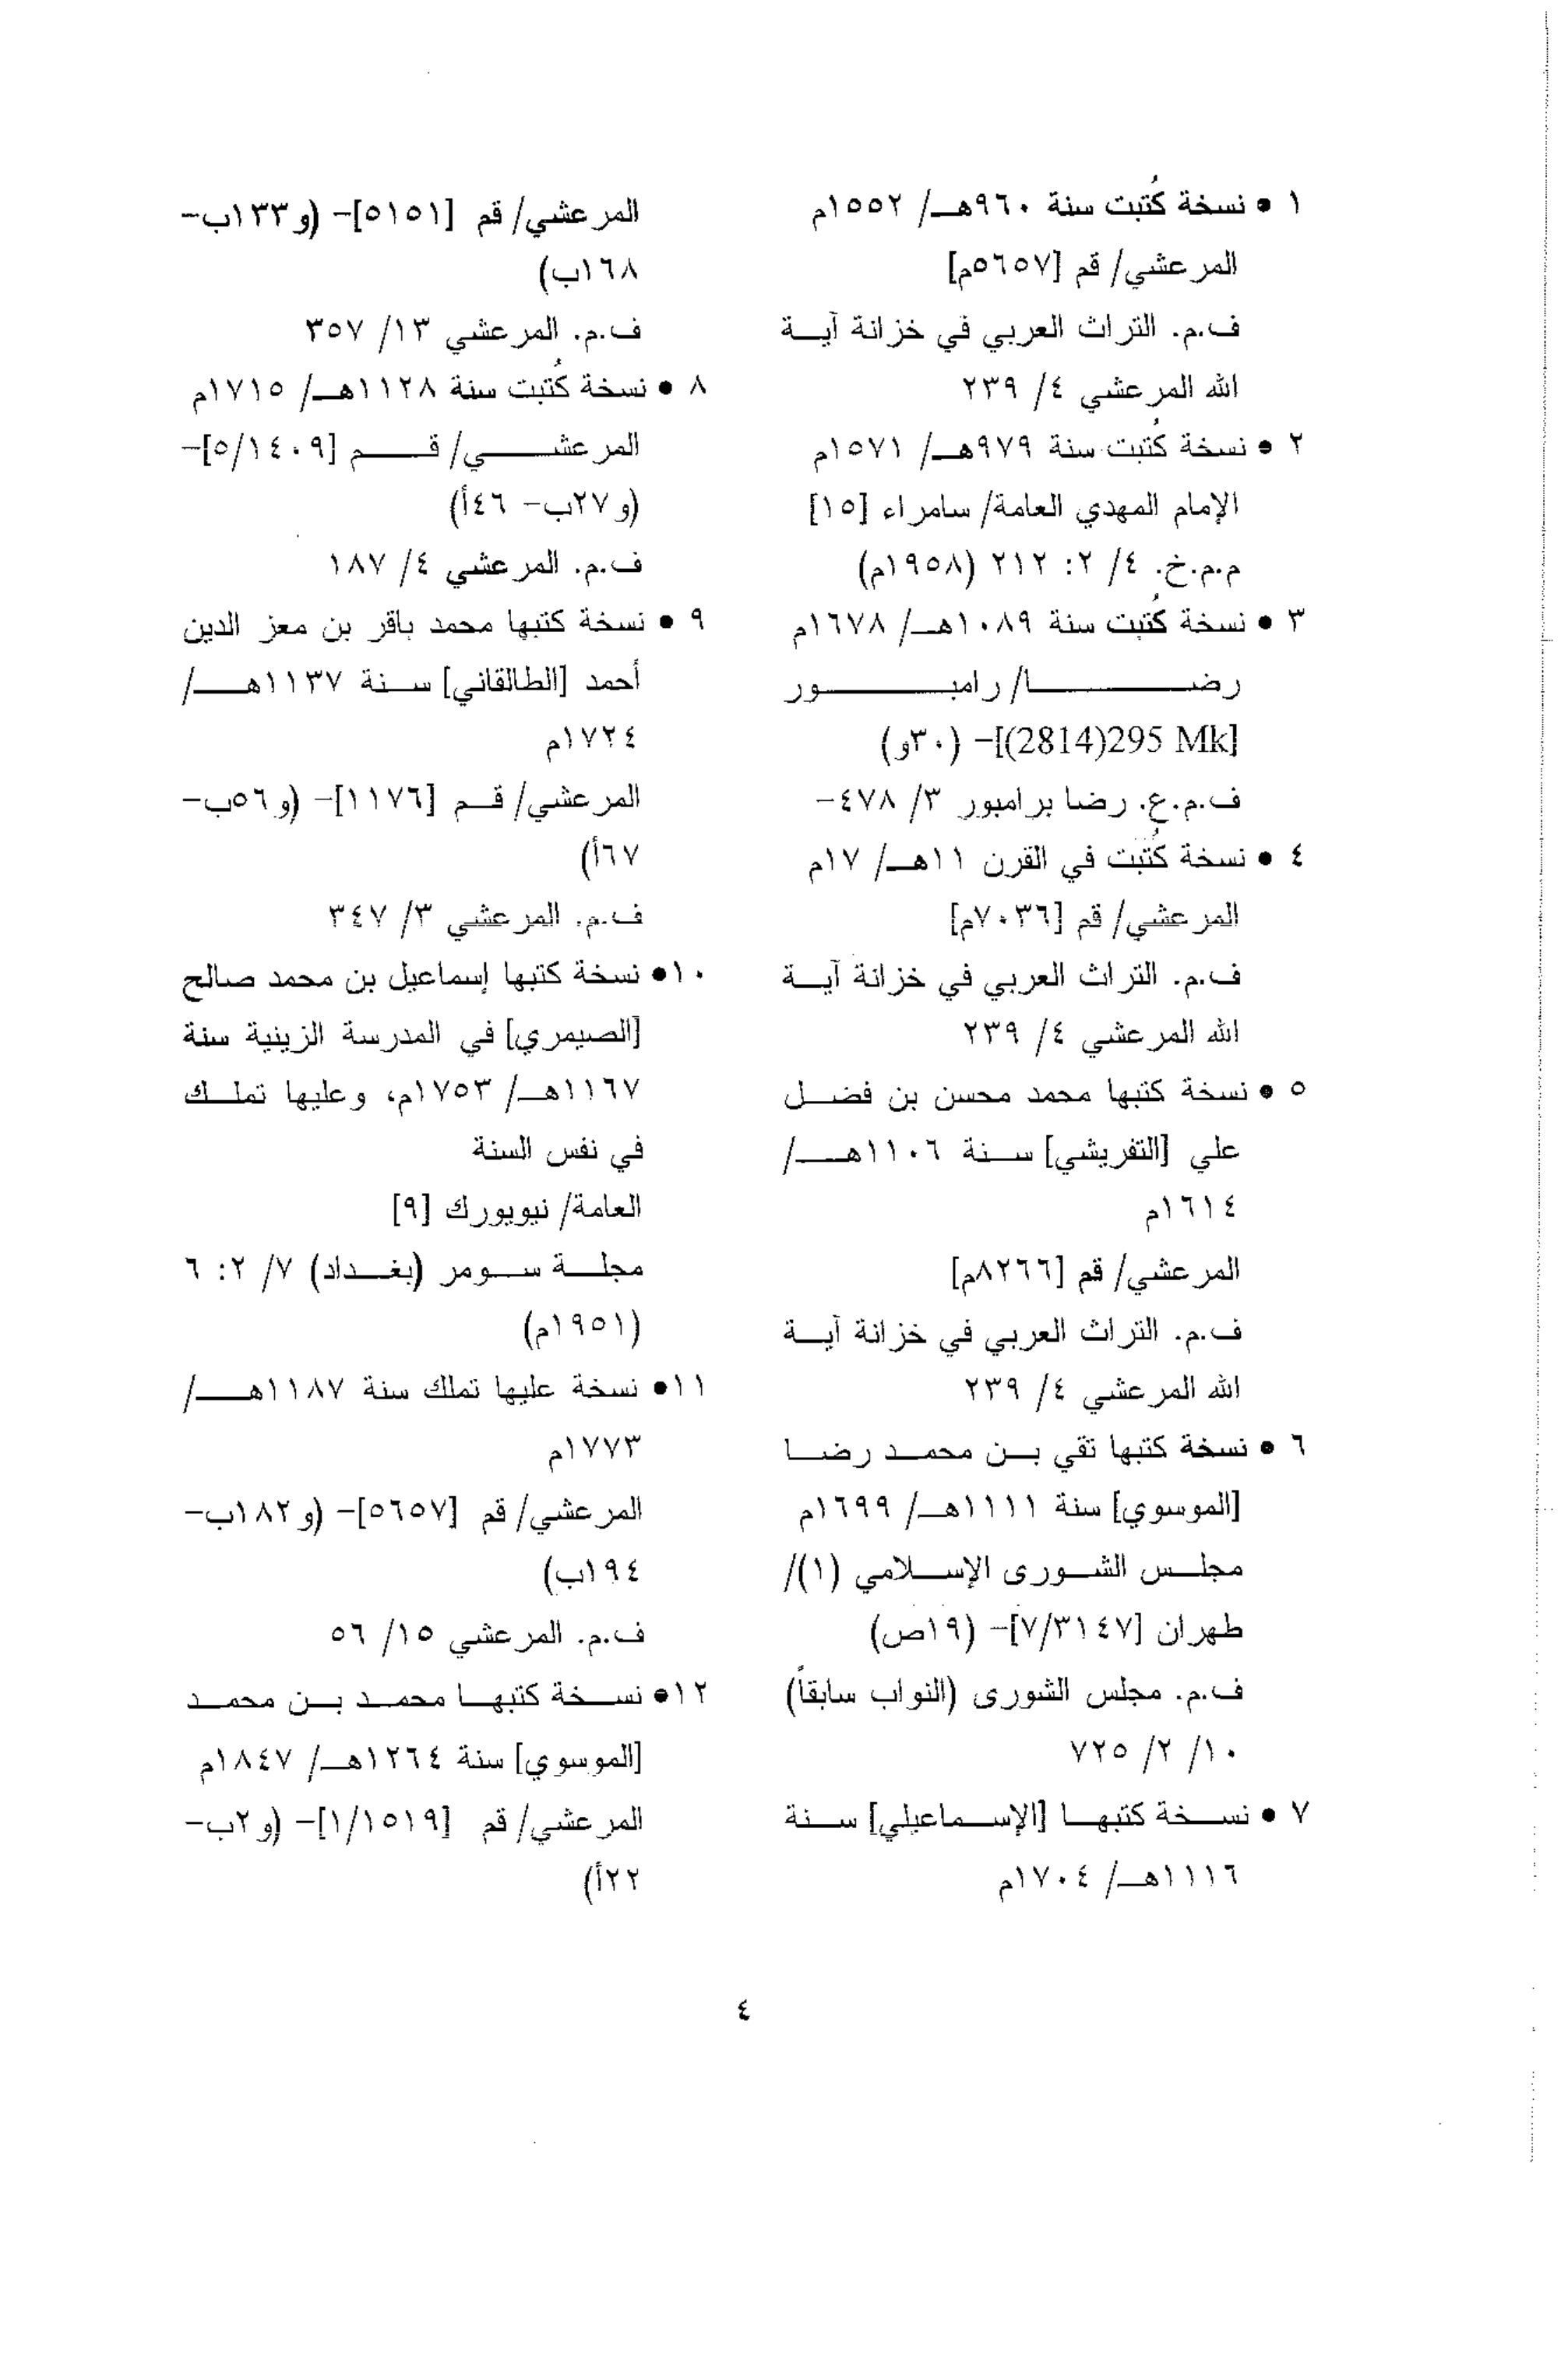 ١ • نسخة كُتبت سنة ٩٦٠هـ/ ١٥٥٢م
المرعشي/ قم [٥٦٥٧م]
ف.م. التراث العربي في خزانة آية
الله المرعشي ٤/ ٢٣٩
٢ • نسخة كُتبت سنة ٩٧٩هـ/ ١٥٧١م
الإمام المهدي العامة/ سامراء [١٥]
م.م.خ. ٤/ ٢: ٢١٢ (١٩٥٨م)
٣ • نسخة كُتبت سنة ١٠٨٩هـ/ ١٦٧٨م
رضا/ رامبور
[295 Mk(2814)]- (٣٠و)
ف.م.ع. رضا برامبور ٣/ ٤٧٨-
٤ • نسخة كُتبت في القرن ١١هـ/ ١٧م
المرعشي/ قم [٧٠٣٦م]
ف.م. التراث العربي في خزانة آية
الله المرعشي ٤/ ٢٣٩
٥ • نسخة كتبها محمد محسن بن فضل
علي [التفريشي] سنة ١١٠٦هـ/
١٦١٤م
المرعشي/ قم [٨٢٦٦م]
ف.م. التراث العربي في خزانة آية
الله المرعشي ٤/ ٢٣٩
٦ • نسخة كتبها تقي بن محمد رضا
[الموسوي] سنة ١١١١هـ/ ١٦٩٩م
مجلس الشورى الإسلامي (١)/
طهران [٧/٣١٤٧]- (١٩ص)
ف.م. مجلس الشورى (النواب سابقاً)
١٠/ ٢/ ٧٢٥
٧ • نسخة كتبها [الإسماعيلي] سنة
١١١٦هـ/ ١٧٠٤م
المرعشي/ قم [٥١٥١]- (و١٣٣ب-
١٦٨ب)
ف.م. المرعشي ١٣/ ٣٥٧
٨ • نسخة كُتبت سنة ١١٢٨هـ/ ١٧١٥م
المرعشي/ قم [٥/١٤٠٩]-
(و٢٧ب- ٤٦أ)
ف.م. المرعشي ٤/ ١٨٧
٩ • نسخة كتبها محمد باقر بن معز الدين
أحمد [الطالقاني] سنة ١١٣٧هـ/
١٧٢٤م
المرعشي/ قم [١١٧٦]- (و٥٦ب-
٦٧أ)
ف.م. المرعشي ٣/ ٣٤٧
١٠• نسخة كتبها إسماعيل بن محمد صالح
[الصيمري] في المدرسة الزينية سنة
١١٦٧هـ/ ١٧٥٣م، وعليها تملك
في نفس السنة
العامة/ نيويورك [٩]
مجلة سومر (بغداد) ٧/ ٢: ٦
(١٩٥١م)
١١• نسخة عليها تملك سنة ١١٨٧هـ/
١٧٧٣م
المرعشي/ قم [٥٦٥٧]- (و١٨٢ب-
١٩٤ب)
ف.م. المرعشي ١٥/ ٥٦
١٢• نسخة كتبها محمد بن محمد
[الموسوي] سنة ١٢٦٤هـ/ ١٨٤٧م
المرعشي/ قم [١/١٥١٩]- (و٢ب-
٢٢أ)
٤